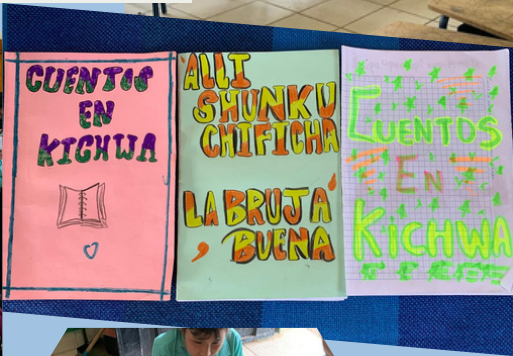 CUENTOS
EN
KICHWA
ALLI
SHUNKU
CHIFICHA
LA BRUJA
BUENA
CUENTOS
EN
KICHWA